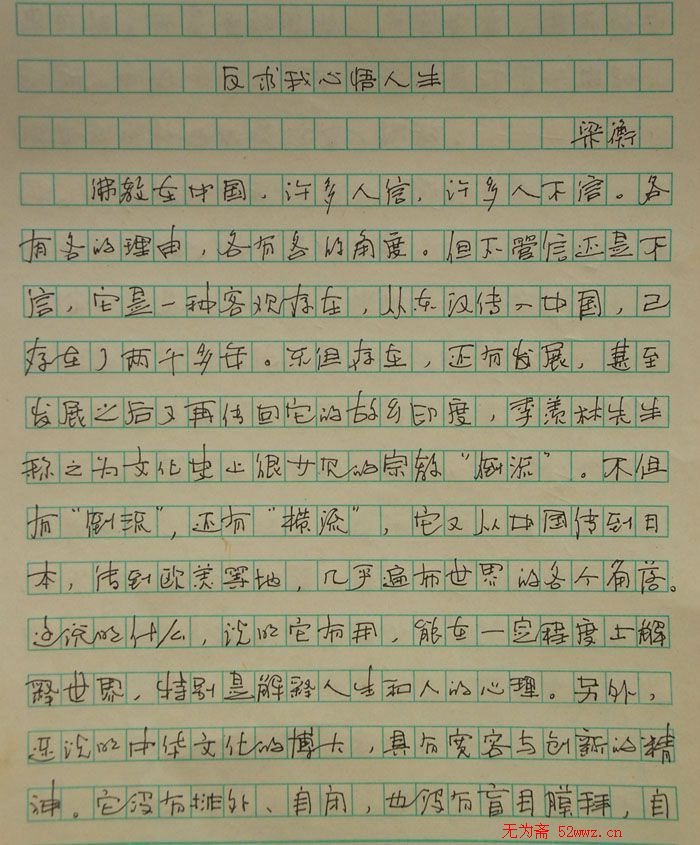 反求我心悟人生
梁衡
佛教在中国，许多人信，许多人不信。各
有各的理由，各有各的角度。但不管信还是不
信，它是一种客观存在，从东汉传入中国，已
存在了两千多年。不但存在，还有发展，甚至
发展之后又再传回它的故乡印度，季羡林先生
称之为文化史上很少见的宗教“倒流”。不但
有“倒流”，还有“横流”，它又从中国传到日
本，传到欧美等地，几乎遍布世界的各个角落。
这说明什么，说明它有用，能在一定程度上解
释世界，特别是解释人生和人的心理。另外，
还说明中华文化的博大，具有宽容与创新的精
神。它没有排外、自闭，也没有盲目膜拜，自
无为斋 52wwz.cn